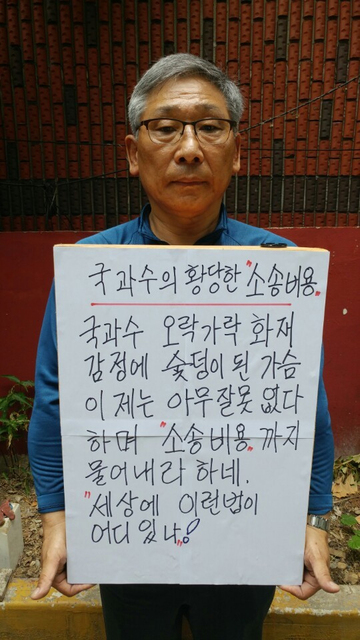 국과수의 황당한 "소송비용"
국과수 오락가락 화재
감정에 숯덩이 된 가슴
이제는 아무잘못 없다
하며 "소송비용" 까지
물어내라 하네.
"세상에 이런법이
어디 있나"!